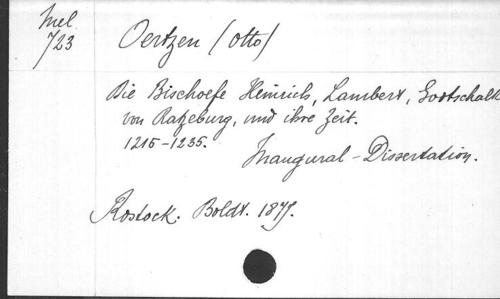 Mel.
723
Oertzen (Otto)
Die Bischoefe Heinrich, Lambert, Gottschalk
von Ratzeburg, und ihre Zeit.
1215-1235.
Inaugural-Dissertation.
Rostock. Boldt. 1879.